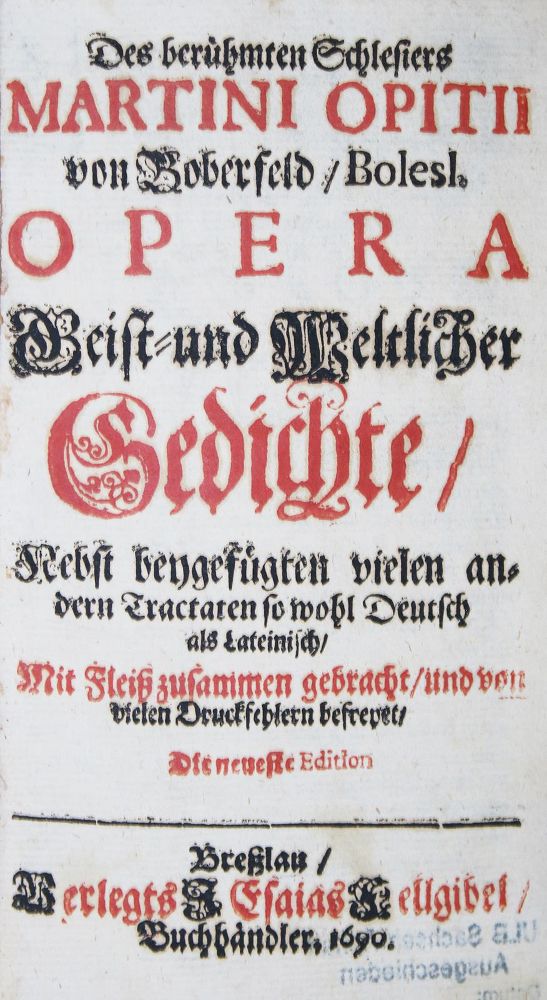 Des berühmten Schlesiers
MARTINI OPITII
von Boberfeld / Bolesl.
OPERA
Geist- und Weltlicher
Gedichte /
Nebst beygefügten vielen an-
dern Tractaten so wohl Deutsch
als Lateinisch /
Mit Fleiß zusammen gebracht / und von
vielen Druckfehlern befreyet /
Die neueste Edition
Breßlau /
Verlegts Esaias Fellgibel /
Buchhändler. 1690.
ULB Sachsen
Ausgeschieden
Datum: